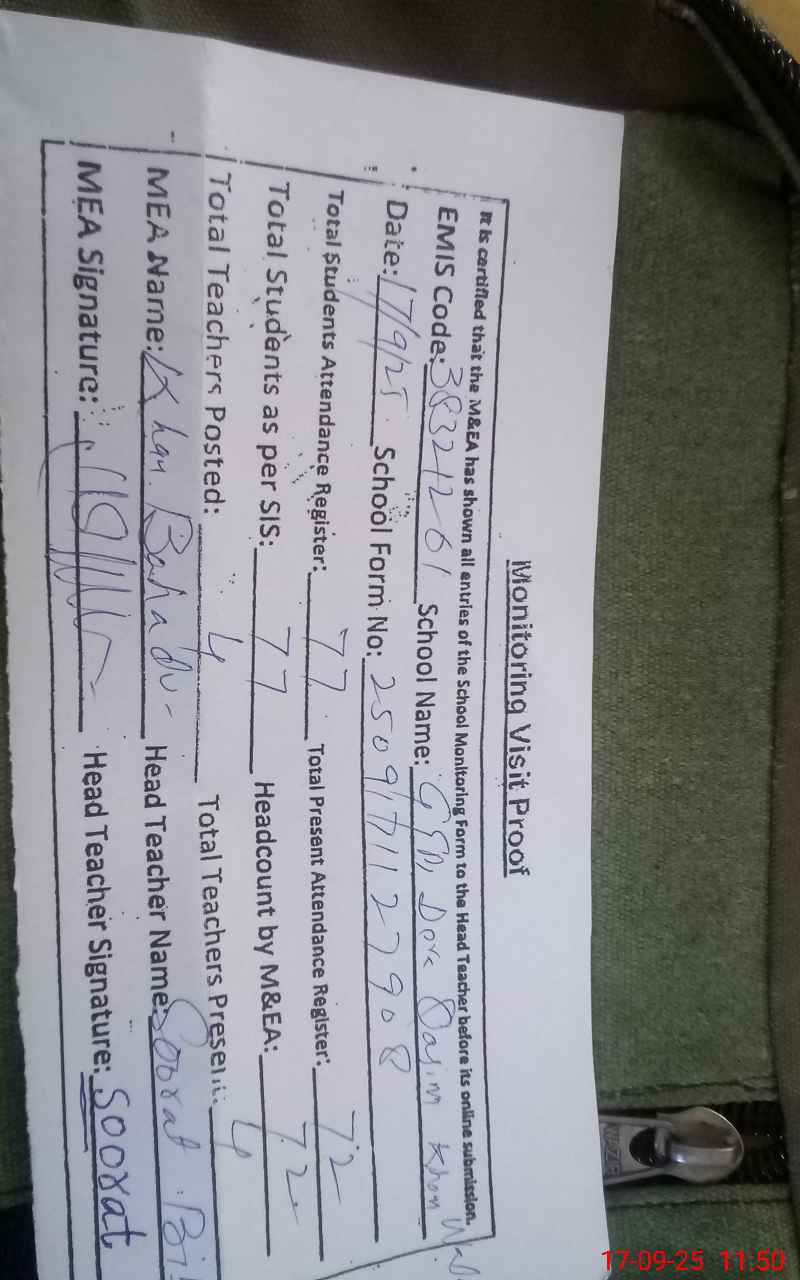 Monitoring Visit Proof
It is certified that the M&EA has shown all entries of the School Monitoring Form to the Head Teacher before its online submission.
EMIS Code: 38321261 School Name: Qasim Khan
Date: 17/9/25 School Form No: 2509171127908
Total Students Attendance Register: 77 Total Present Attendance Register: 72
Total Students as per SIS: 77 Headcount by M&EA: 72
Total Teachers Posted: 4 Total Teachers Present: 4
MEA Name: Khan Bahadur Head Teacher Name: Soorat Bi
MEA Signature: Head Teacher Signature: Soorat
17-09-25 11:50